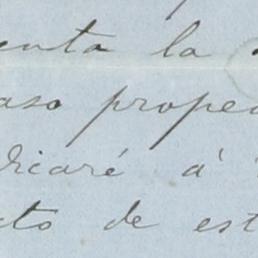 enta la
aso prope
dicaré á
to de est